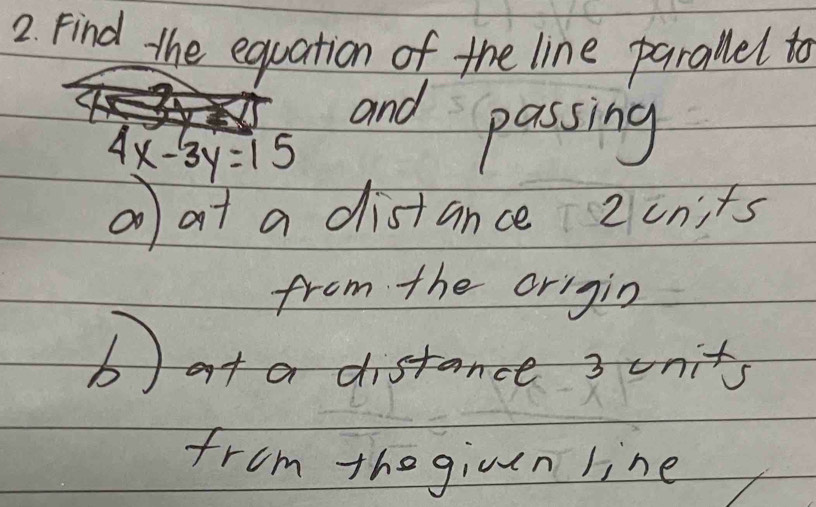 2. Find the equation of the line parallel to
and passing
4x-3y=15
a) at a distance 2 units
from the origin
b) at a distance 3 units
from the given line